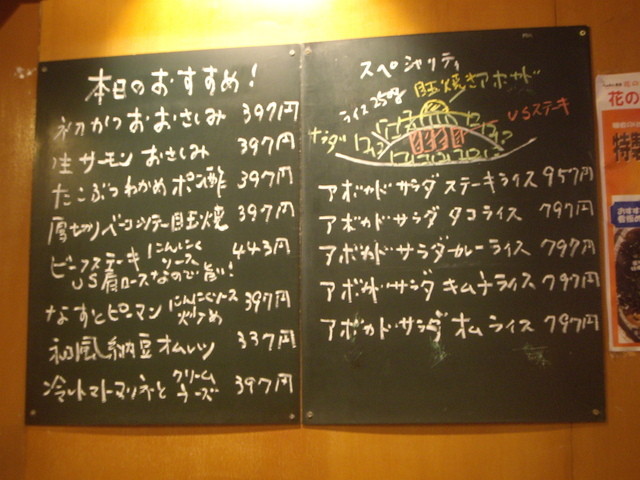 本日のおすすめ!
初かつおおさしみ 397円
生サーモン おさしみ 397円
たこぶつわかめ ポン酢 397円
厚切りベーコンソテー目玉焼 397円
ビーフステーキ にんにくソース 443円
US肩ロースなので旨い!
なすとピーマン にんにくソース炒め 397円
和風納豆オムレツ 337円
冷しトマトマリネと クリームチーズ 397円
スペシャリティ
目玉焼き アボカド
ライス250g
USステーキ
サラダ
アボカド・サラダ ステーキライス 957円
アボカド・サラダ タコライス 797円
アボカド・サラダ カレーライス 797円
アボカド・サラダ キムチライス 797円
アボカド・サラダ オムライス 797円
花の
特製